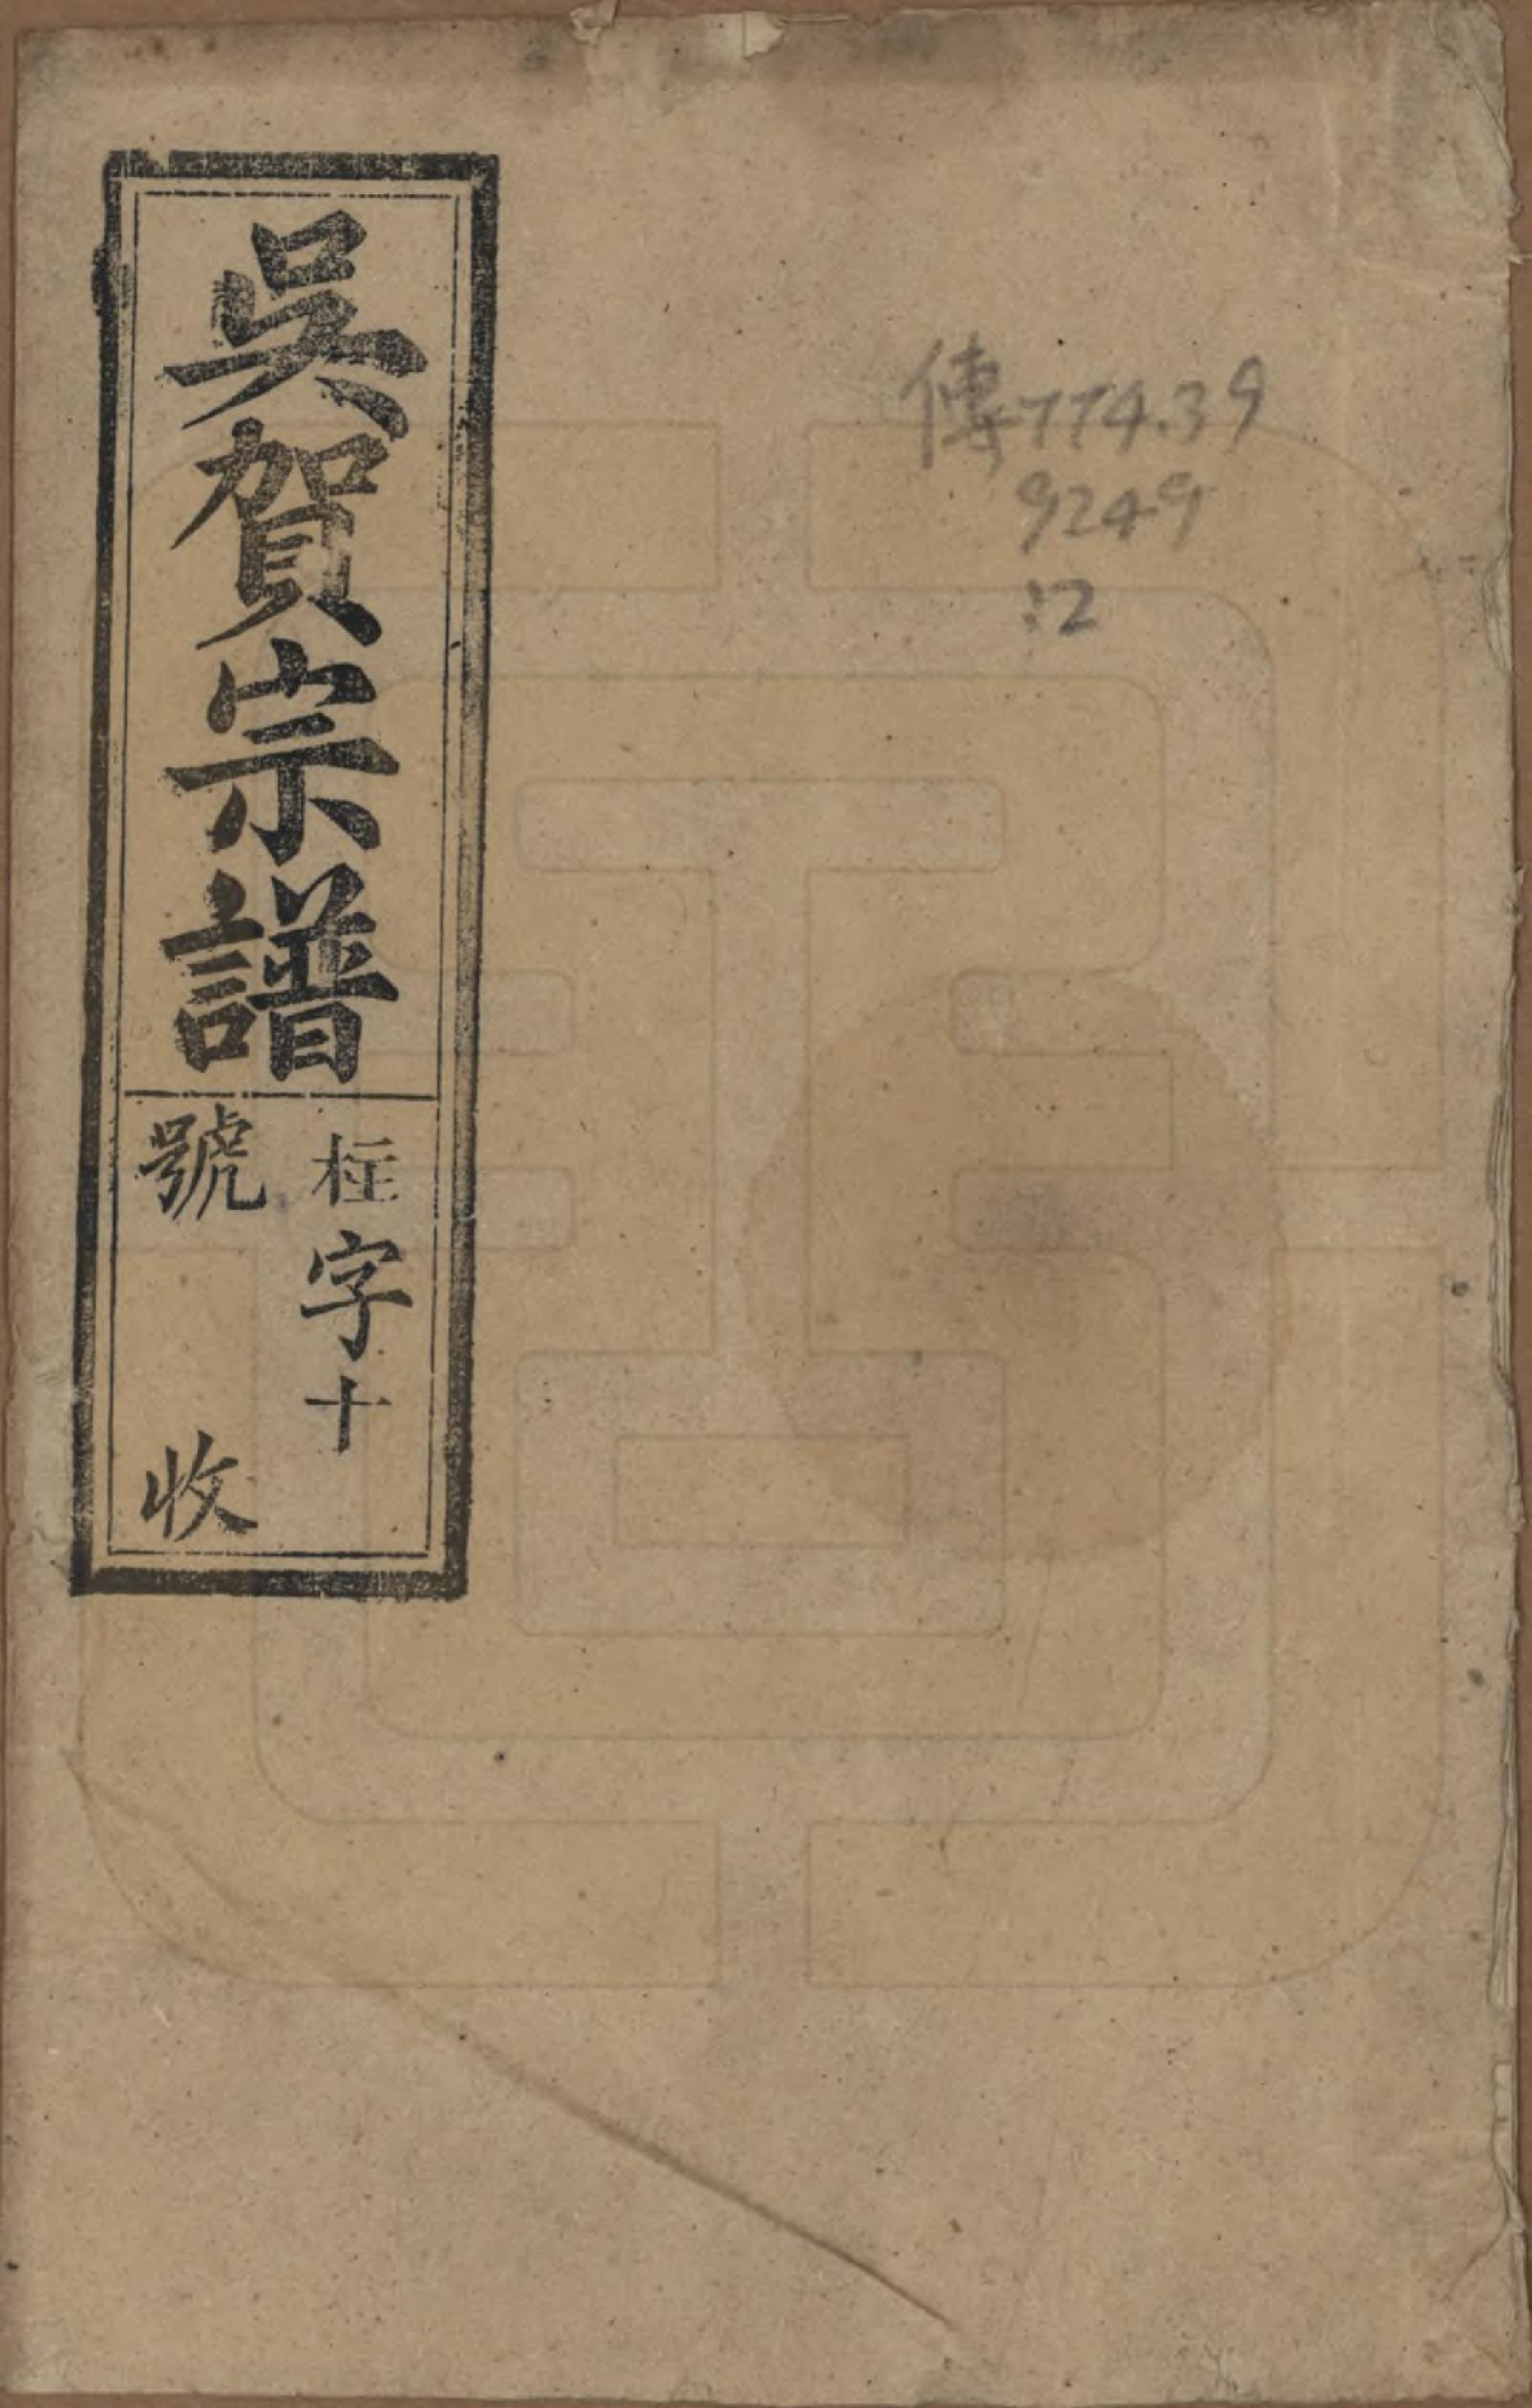 吳賀宗譜
柱字十
號
收
傳774.39
9249
:2